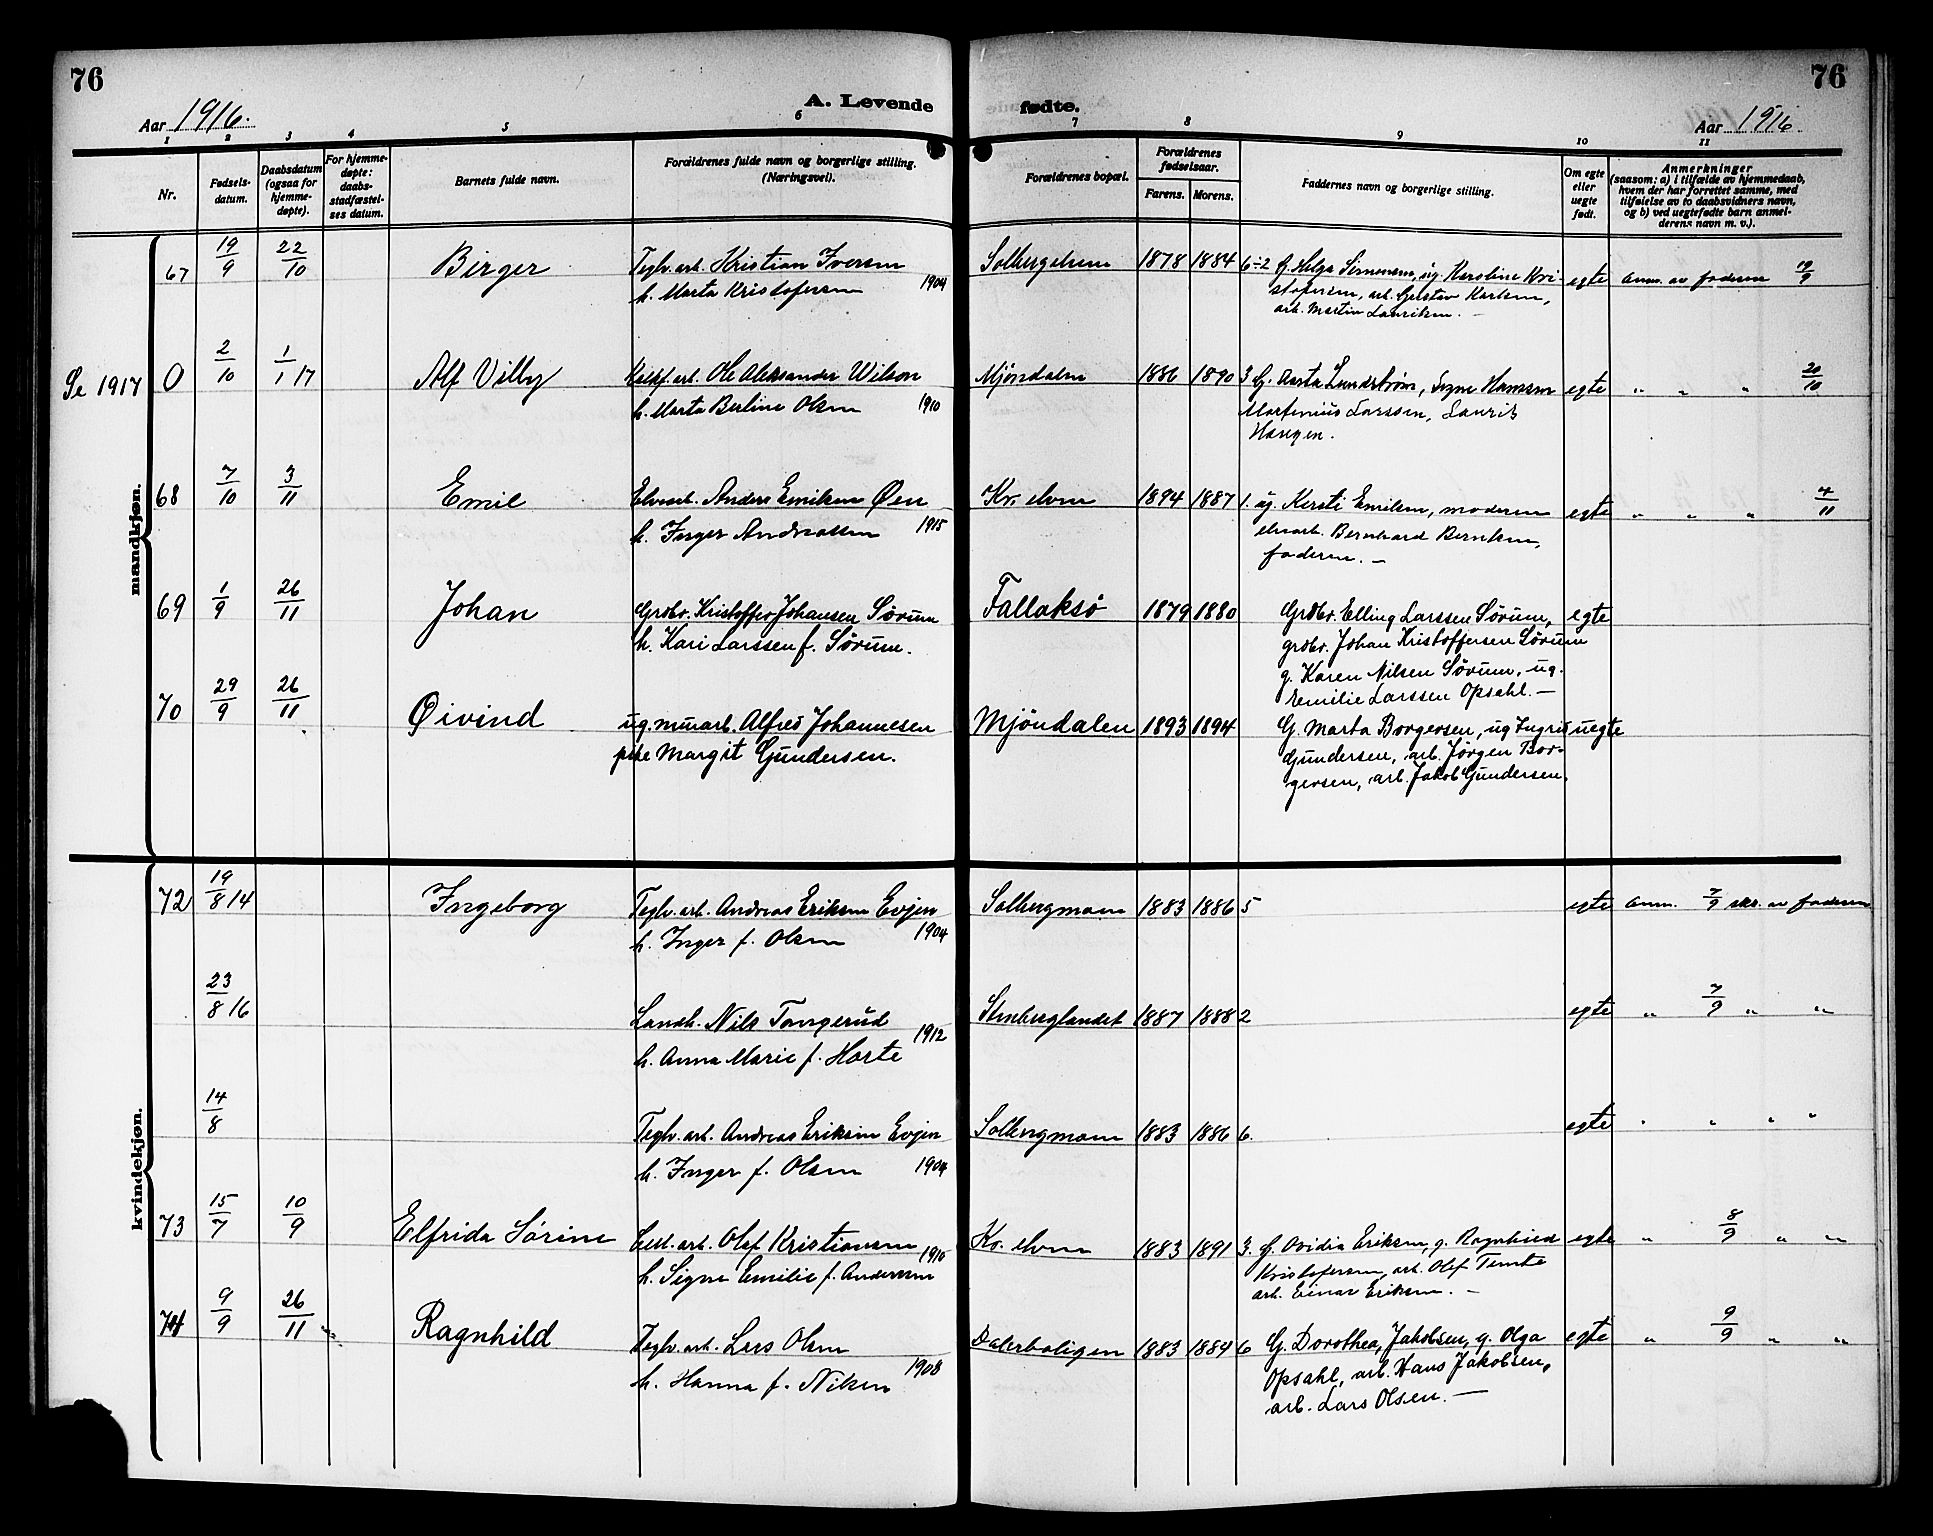 76
76
Aar 1916.
A. Levende
fødte.
Aar 1916.
1 2 3 4 5 6 7 8 9 10 11
Nr.
Fødsels-
datum.
Daabsdatum
(ogsaa for
hjemme-
døpte).
For hjemme-
døpte:
daabs-
stadfæstel-
ses datum.
Barnets fulde navn.
Forældrenes fulde navn og borgerlige stilling.
(Næringsvei).
Forældrenes bopæl.
Forældrenes
fødselsaar.
Farens. Morens.
Faddernes navn og borgerlige stilling.
Om egte
eller
uegte
født.
Anmerkninger
(saasom: a) i tilfælde av hjemmedaab,
hvem der har forrettet samme, med
tilføielse av to daabsvidners navn,
og b) ved uegtefødte barn anmel-
derens navn m. v.).
mandkjøn.
67 19/9 22/10 Birger
Teglv. arb. Kristian Iversen
h. Marta Kristofersen 1904
Solbergelven 1878 1884
6÷2 G. Helga Simensen, ug. Karoline Kri-
stofersen, arb. Gustav Karlsen,
arb. Martin Lauriksen. —
egte Anm. av faderen 19/9
Se 1917 0 2/10 1/1 17 Alf Villy
arb. Ole Aleksander Wilson
h. Marta Berline Olsen 1910
Mjøndalen 1886 1890
3 G. Aasta Lundstrøm, Signe Hansen
Martinius Larssen, Laurik
Haugen.
egte " " " 20/10
68 7/10 3/11 Emil
Elvearb. Anders Emiksen Øen
h. Inger Andreassen 1915
Kr. elven 1894 1887
1. ug. Kersti Emiksen, moderen
elvearb. Bernhard Berntsen,
faderen. —
egte " " " 4/11
69 1/9 26/11 Johan
Grdbr. Kristoffer Johansen Sørum
h. Kari Larssen f. Sørum.
Fallaksø 1879 1880
Grdbr. Elling Larssen Sørum,
grdbr. Johan Kristoffersen Sørum
g. Karen Nilsen Sørum, ug.
Emilie Larssen Opsahl. —
egte
70 29/9 26/11 Øivind
ug. murarb. Alfred Johannesen
pike Margit Gundersen.
Mjöndalen 1893 1894
G. Marta Borgersen, ug Ingrid
Gundersen, arb. Jørgen Bor-
gersen, arb. Jakob Gundersen.
uegte
kvindekjøn.
72 19/8 14 Ingeborg
Teglv. arb. Andreas Eriksen Evjen
h. Inger f. Olsen 1904
Solbergmoen 1883 1886 5
egte Anm. 7/9 skr. av faderen
23/8 16
Landh. Nils Tangerud
h. Anna Marie f. Horte 1912
Stenberglandet 1887 1888 2
egte " 7/9 " "
14/8
Teglv. arb. Andreas Eriksen Evjen
h. Inger f. Olsen 1904
Solbergmoen 1883 1886 6.
egte " " " "
73 15/7 10/9 Elfrida Sørine
Cell. arb. Olaf Kristiansen
h. Signe Emilie f. Andersen 1910
Kr. elven 1883 1891
3. G. Ovidia Eriksen, g. Ragnhild
Kristofersen, arb. Olef Temte
arb. Einar Eriksen. —
egte " 8/9 " "
74 9/9 26/11 Ragnhild
Teglv. arb. Lars Olsen
h. Hanna f. Nilsen 1908
Dalerboligen 1883 1884
6 G. Dorothea Jakobsen, g. Olga
Opsahl, arb. Hans Jakobsen,
arb. Lars Olsen. —
egte " 9/9 " "